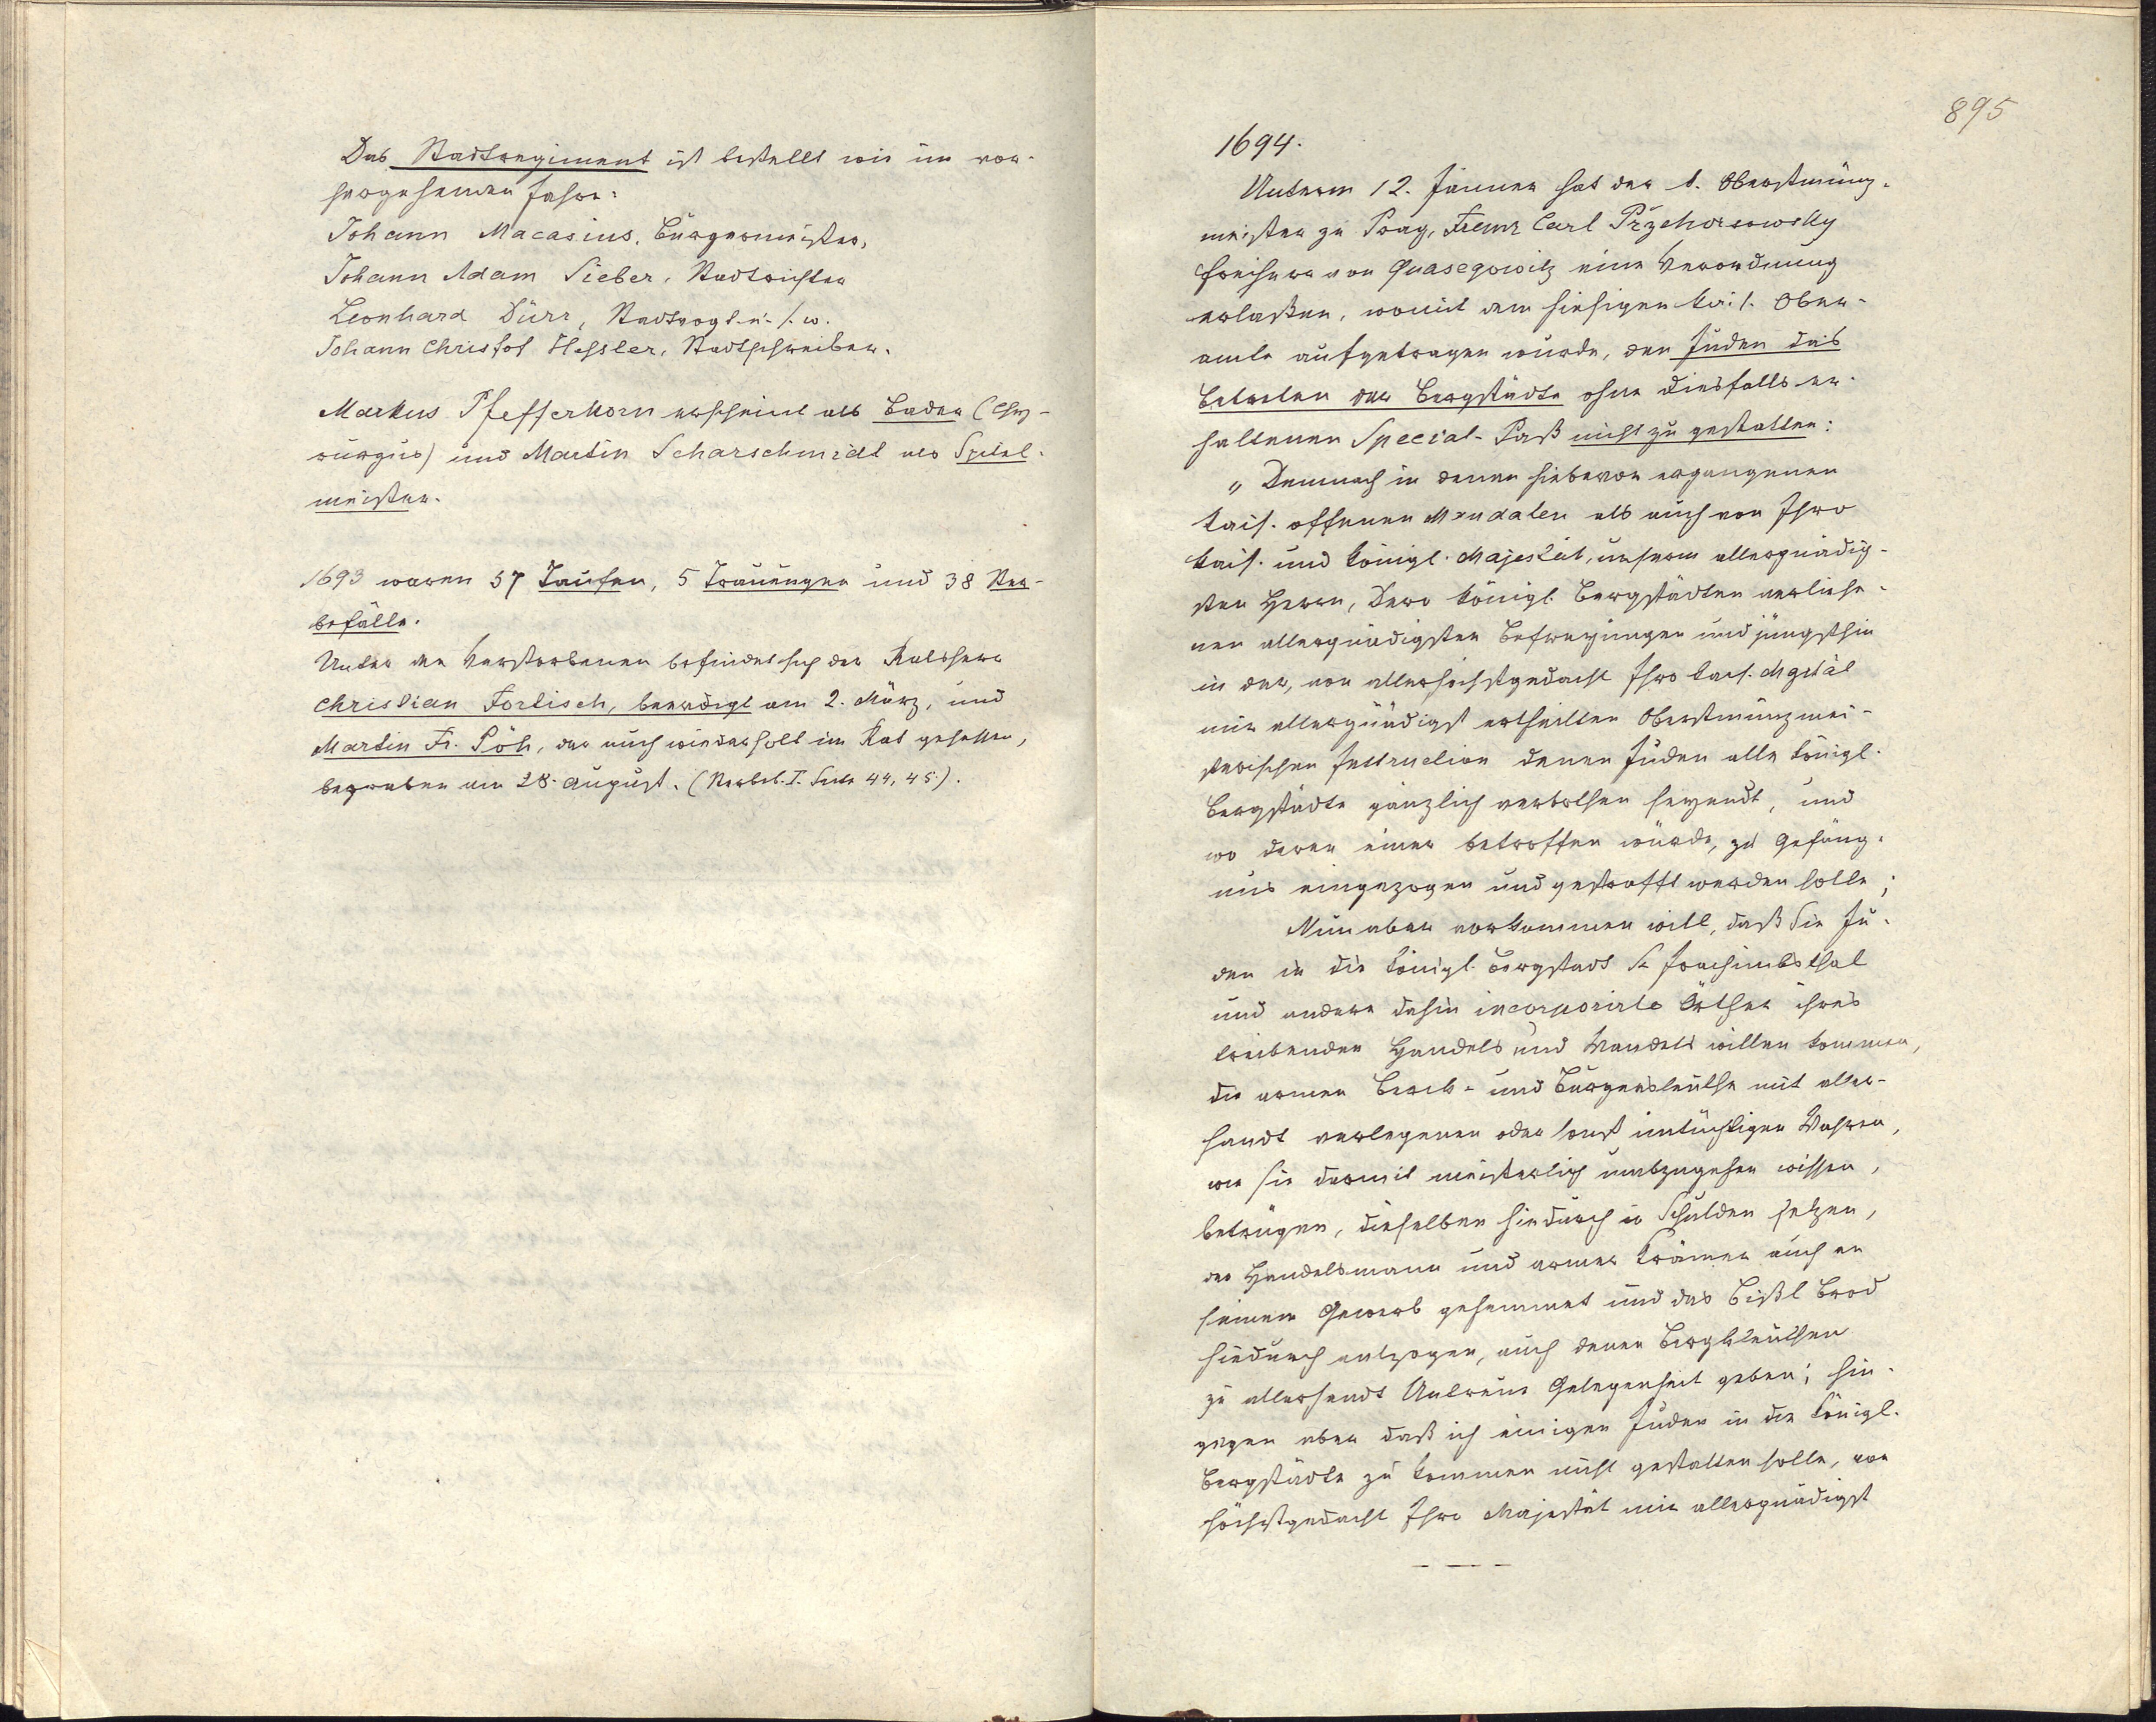 Das Stadtregiment ist bestellt wie im vor-
hergehenden Jahre:
Johann Macasius, Bürgermeister,
Johann Adam Sieber, Stadtrichter
Leonhard Dürr, Stadtvogt u. s. w.
Johann Christof Hessler, Stadtschreiber.
Markus Pfefferkorn erscheint als Bader (Chy-
rurgus) und Martin Scharschmidt als Spitel-
meister.
1693 waren 57 Taufen, 5 Trauungen und 38 Ster-
befälle.
Unter den Verstorbenen befindet sich der Ratsherr
Christian Forbisch, beerdigt am 2. März, und
Martin Fr. Pöh, der auch wiederholt im Rat gesessen,
begraben am 28. August. (Sterbeb. I. Seite 44, 45).
895
1694.
Unterm 12. Jänner hat der k. Oberstmünz-
meister zu Prag, Franz Carl Přzehorsowsky
Freiherr von Quasegowitz eine Verordnung
erlaßen, womit dem hiesigen kais. Ober-
amte aufgetragen wurde, den Juden das
Betreten der Bergstädte ohne diesfalls er-
haltenen Special-Paß nicht zu gestatten:
„Demnach in denen hiebevor ergangenen
kais. offenen Mandaten als auch von Ihro
kais. und königl. Majestät, unserm allergnädig-
sten Herrn, Dero königl. Bergstädten verliehe-
nen allergnädigsten Befreyungen und jüngsthin
in der, von allerhöchstgedacht Ihro kais. Mgstät
mir allergnädigst ertheilten Oberstmünzmei-
sterischen Instruction denen Juden alle königl.
Bergstädte gänzlich verbothen seyendt, und
wo deren einer betroffen würde, zu Gefäng-
nus eingezogen und gestrafft werden solle;
Nun aber vorkommen will, daß die Ju-
den in die königl. Bergstadt St. Joachimbsthal
und andere dahin incorporirte Örther ihres
treibenden Handels und Wandels willen kommen,
die armen Berck- und Bürgersleuthe mit aller-
handt verlegenen oder sonst untüchtigen Wahren,
wie sie darmit meisterlich umbzugehen wissen,
betrügen, dieselben hiedurch in Schulden setzen,
der Handelsmann und armer Krämer auch an
seinem Gewerb gehemmet und das Bißl Brod
hiedurch entzogen, auch denen Bergkleuthen
zu allerhandt Untreue Gelegenheit geben; hin-
gegen aber daß ich einigen Juden in die königl.
Bergstädte zu kommen nicht gestatten solle, von
höchstgedacht Ihro Majestät mir allergnädigst